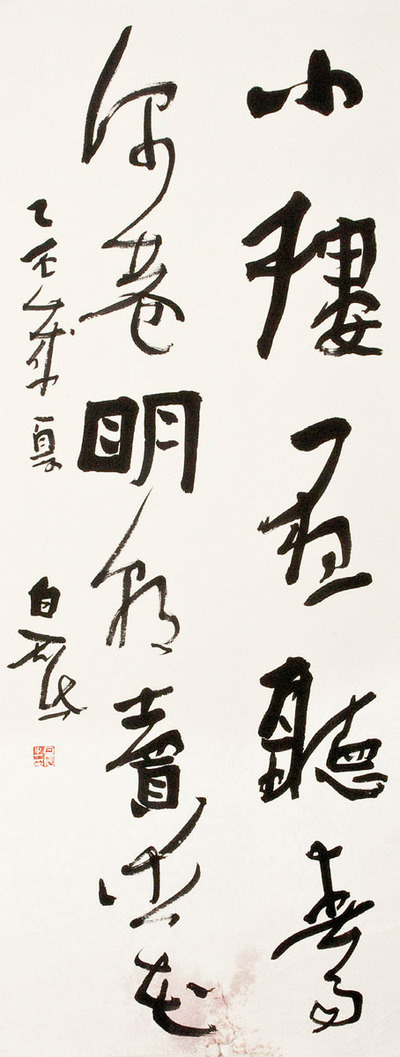 小樓一夜聽春雨
深巷明朝賣杏花
乙酉歲夏 白砥